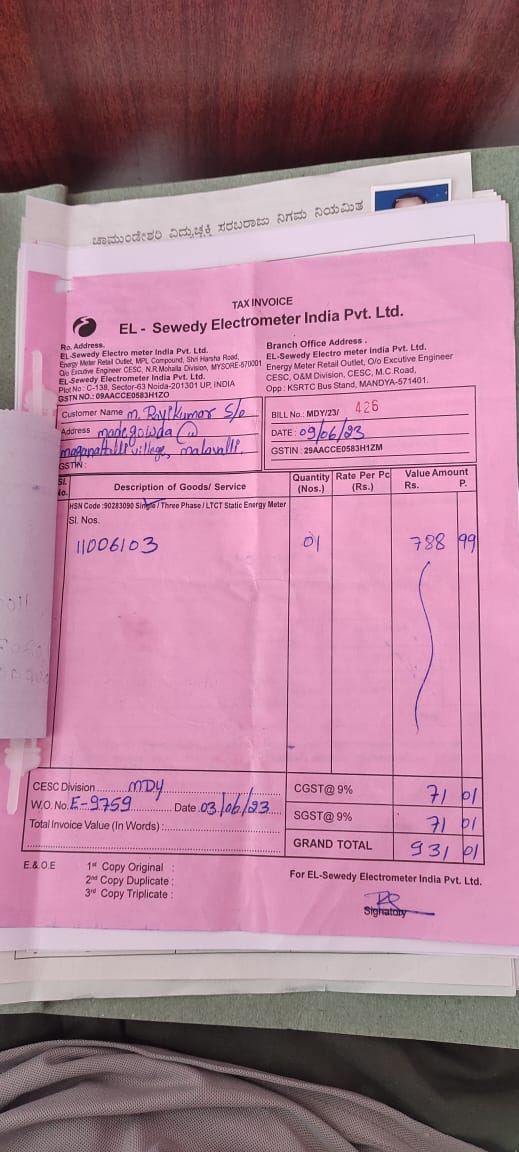 ಚಾಮುಂಡೇಶ್ವರಿ ವಿದ್ಯುಚ್ಛಕ್ತಿ ಸರಬರಾಜು ನಿಗಮ ನಿಯಮಿತ
TAX INVOICE
EL - Sewedy Electrometer India Pvt. Ltd.
Ro. Address.
EL-Sewedy Electro meter India Pvt. Ltd.
Energy Meter Retail Outlet, MPL Compound, Shri Harsha Road,
O/o Excutive Engineer CESC, N.R.Mohalla Division, MYSORE-570001
EL-Sewedy Electrometer India Pvt. Ltd.
Plot No : C-138, Sector-63 Noida-201301 UP, INDIA
GSTN NO.: 09AACCE0583H1ZO
Branch Office Address .
EL-Sewedy Electro meter India Pvt. Ltd.
Energy Meter Retail Outlet, O/o Excutive Engineer
CESC, O&M Division, CESC, M.C.Road,
Opp : KSRTC Bus Stand, MANDYA-571401.
Customer Name M. Ravikumar S/o
Address madegowda
village, malavalli.
GSTIN :
BILL No.: MDY/23/ 426
DATE : 09/06/23
GSTIN : 29AACCE0583H1ZM
Sl. No. Description of Goods/ Service Quantity (Nos.) Rate Per Pc (Rs.) Value Amount Rs. P.
HSN Code :90283090 Single / Three Phase / LTCT Static Energy Meter
Sl. Nos.
11006103 01 788 99
CESC Division MDY
W.O. No. E-9759 Date 03/06/23
Total Invoice Value (In Words) :
CGST@ 9% 71 01
SGST@ 9% 71 01
GRAND TOTAL 931 01
E.&.O.E 1st Copy Original :
2nd Copy Duplicate :
3rd Copy Triplicate :
For EL-Sewedy Electrometer India Pvt. Ltd.
Signatory